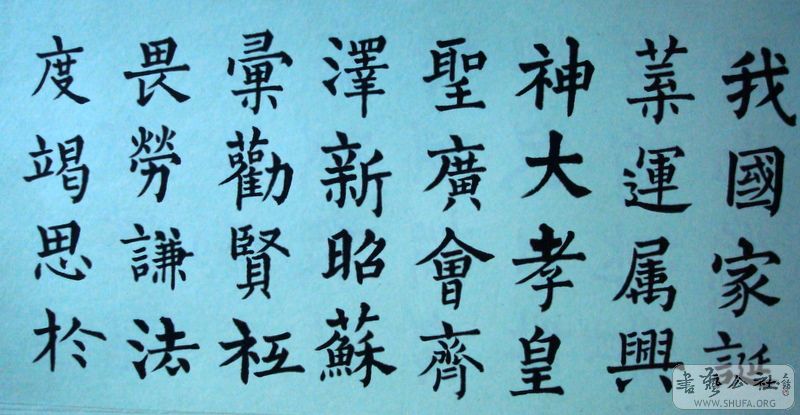 我國家誕
葉運属興
神大孝皇
聖廣會齊
澤新昭蘇
彙勸賢
畏勞謙法
度竭思於
書藝公社
WWW.SHUFA.ORG